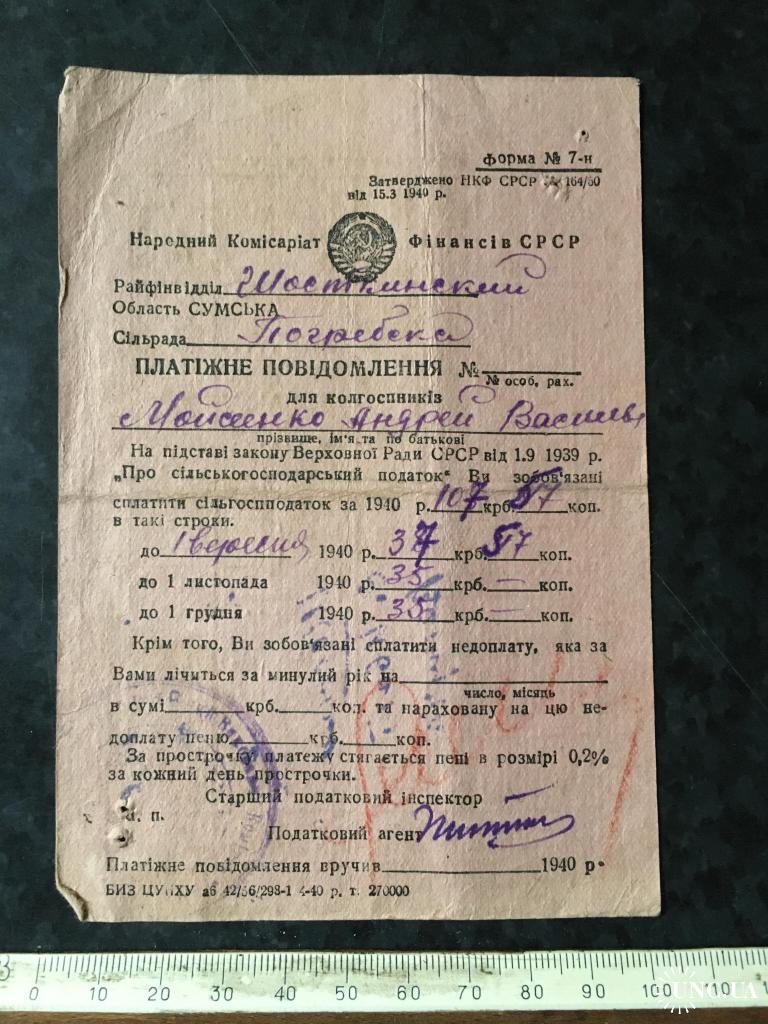 форма № 7-н
Затверджено НКФ СРСР № 164/50
від 15.3 1940 р.
Народний Комісаріат Фінансів СРСР
Райфінвідділ Шосткинский
Область СУМСЬКА
Сільрада Погребска
ПЛАТІЖНЕ ПОВІДОМЛЕННЯ №
№ особ. рах.
для колгоспників
Мойсенко Андрей Василь
прізвище, ім'я та по батькові
На підставі закону Верховної Ради СРСР від 1.9 1939 р.
„Про сільськогосподарський податок" Ви зобов'язані
сплатити сільгоспподаток за 1940 р. 107 крб. 57 коп.
в такі строки.
до 1 вересня 1940 р. 37 крб. 57 коп.
до 1 листопада 1940 р. 35 крб. — коп.
до 1 грудня 1940 р. 35 крб. — коп.
Крім того, Ви зобов'язані сплатити недоплату, яка за
Вами лічиться за минулий рік на
число, місяць
в сумі крб. коп. та нараховану на цю не-
доплату пеню крб. коп.
За прострочку платежу стягається пені в розмірі 0,2%
за кожний день прострочки.
Старший податковий інспектор
м. п.
Податковий агент
Платіжне повідомлення вручив 1940 р.
БИЗ ЦУНХУ аб 42/56/298-1 4-40 р. т. 270000
0 10 20 30 40 50 60 70 80 90 100 110
UNC.UA